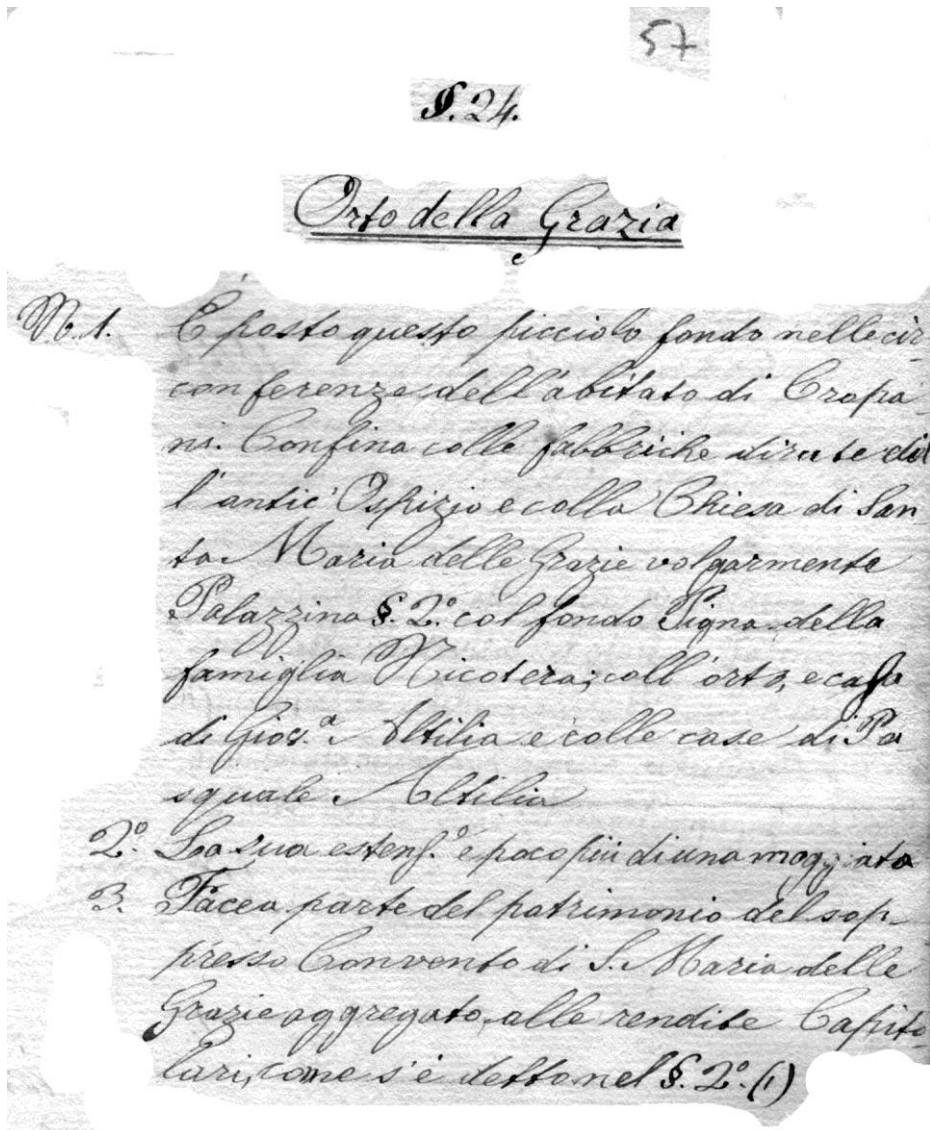 57
§. 24.
Orto della Grazia
N. 1. È posto questo picciolo fondo nelle cir-
conferenze dell'abitato di Cropa-
ni. Confina colle fabbriche dirute del
l'antic' Ospizio e colla Chiesa di San
ta Maria delle Grazie volgarmente
Palazzina §. 2.° col fondo Pigna della
famiglia Nicotera; coll'orto, e casa
di Gios.ª Altilia e colle case di Pa
squale Altilia
2.° La sua estens.° è poco più di una moggiata
3. Facea parte del patrimonio del sop-
presso Convento di S. Maria delle
Grazie aggregato alle rendite Capito-
lari, come s'è detto nel §. 2.° (1)